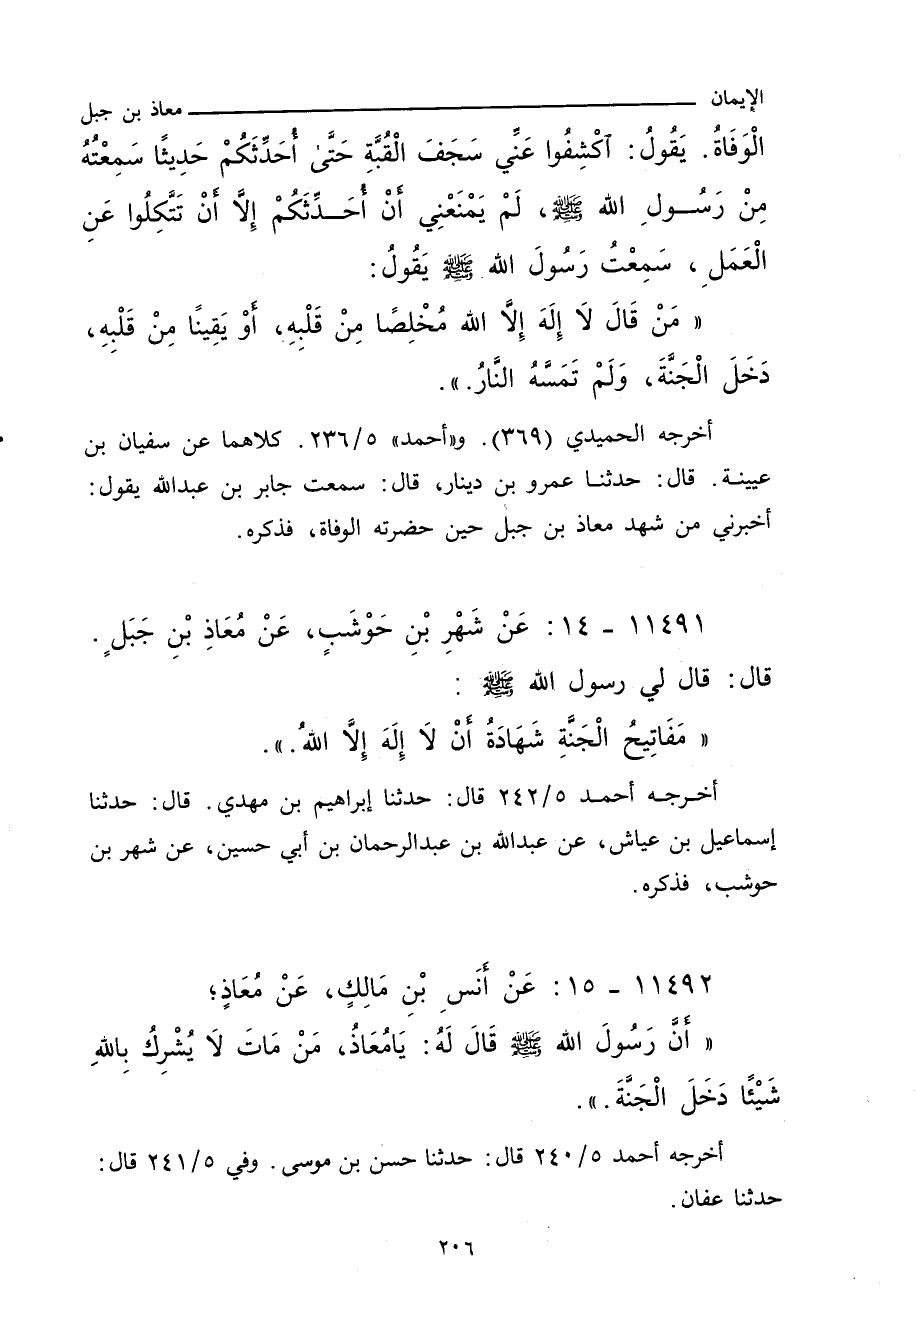 الإيمان ــــــــ معاذ بن جبل
الْوَفَاةُ. يَقُولُ: ٱكْشِفُوا عَنِّي سَجَفَ الْقُبَّةِ حَتَّىٰ أُحَدِّثَكُمْ حَدِيثًا سَمِعْتُهُ
مِنْ رَسُـــولِ الله ﷺ، لَمْ يَمْنَعْنِي أَنْ أُحَـــدِّثَكُمْ إِلَّا أَنْ تَتَّكِلُوا عَنِ
الْعَمَلِ، سَمِعْتُ رَسُولَ الله ﷺ يَقُولُ:
« مَنْ قَالَ لَا إِلَهَ إِلَّا الله مُخْلِصًا مِنْ قَلْبِهِ، أَوْ يَقِينًا مِنْ قَلْبِهِ،
دَخَلَ الْجَنَّةَ، وَلَمْ تَمَسَّهُ النَّارُ.».
أخرجه الحميدي (٣٦٩). و«أحمد» ٢٣٦/٥. كلاهما عن سفيان بن
عيينـة. قال: حدثنـا عمرو بن دينار، قال: سمعت جابر بن عبدالله يقول:
أخبرني من شهد معاذ بن جبل حين حضرته الوفاة، فذكره.
١١٤٩١ - ١٤: عَنْ شَهْرِ بْنِ حَوْشَبٍ، عَنْ مُعَاذِ بْنِ جَبَلٍ.
قال: قال لي رسول الله ﷺ :
« مَفَاتِيحُ الْجَنَّةِ شَهَادَةُ أَنْ لَا إِلَهَ إِلَّا اللهُ.».
أخـرجـه أحمـد ٢٤٢/٥ قال: حدثنا إبراهيم بن مهدي. قال: حدثنا
إسماعيل بن عياش، عن عبدالله بن عبدالرحمان بن أبي حسين، عن شهر بن
حوشب، فذكره.
١١٤٩٢ - ١٥: عَنْ أَنَسِ بْنِ مَالِكٍ، عَنْ مُعَاذٍ؛
« أَنَّ رَسُولَ الله ﷺ قَالَ لَهُ: يَامُعَاذُ، مَنْ مَاتَ لَا يُشْرِكُ بِاللهِ
شَيْئًا دَخَلَ الْجَنَّةَ.».
أخرجه أحمد ٢٤٠/٥ قال: حدثنا حسن بن موسى. وفي ٢٤١/٥ قال:
حدثنا عفان.
٢٠٦